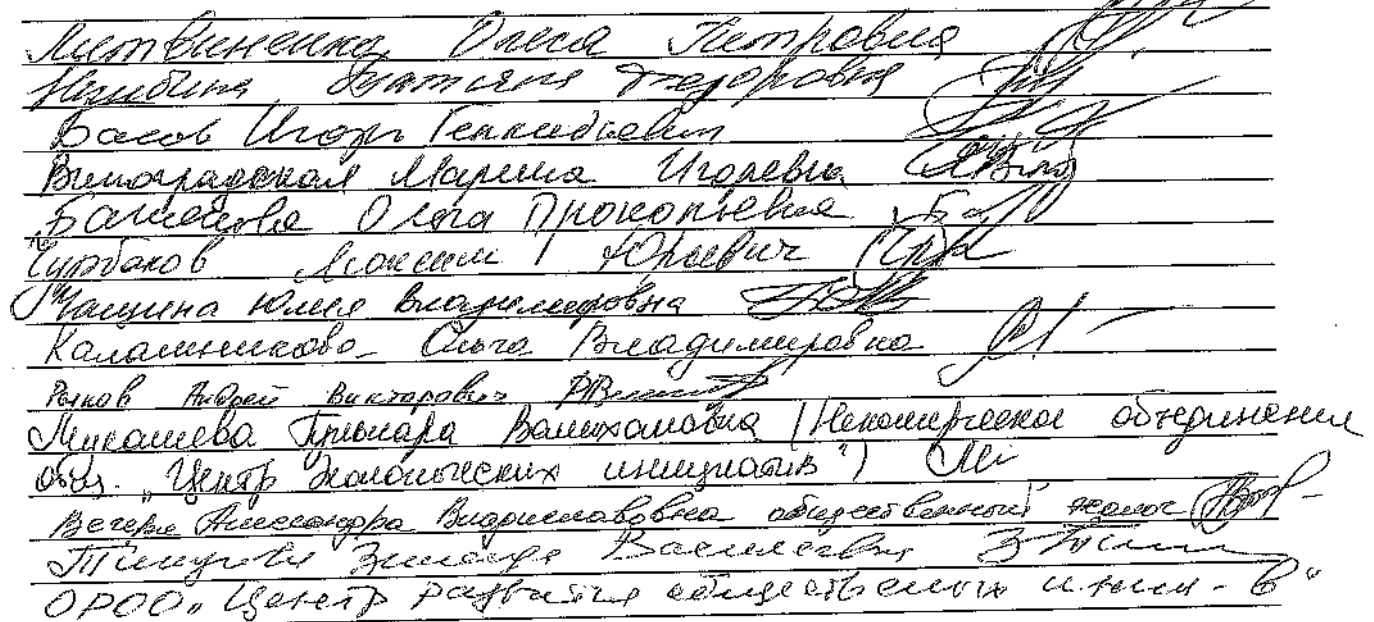 Литвиненко Олеся Петровна
Татьяна Федоровна
Басов Игорь Геннадьевич
Виноградская Марина Игоревна
Баженова Ольга Прокопьевна
Чурбаков Максим Юрьевич
Чащина Юлия Владимировна
Калашникова Ольга Владимировна
Рыков Андрей Викторович
Мукашева Гульнара Валихановна (Некомерческое объединение
общ. „Центр экологических инициатив")
Вечеря Александра Владиславовна общественный эколог
Зинаида Васильевна
ОРОО „Центр развития общественных иниц-в"